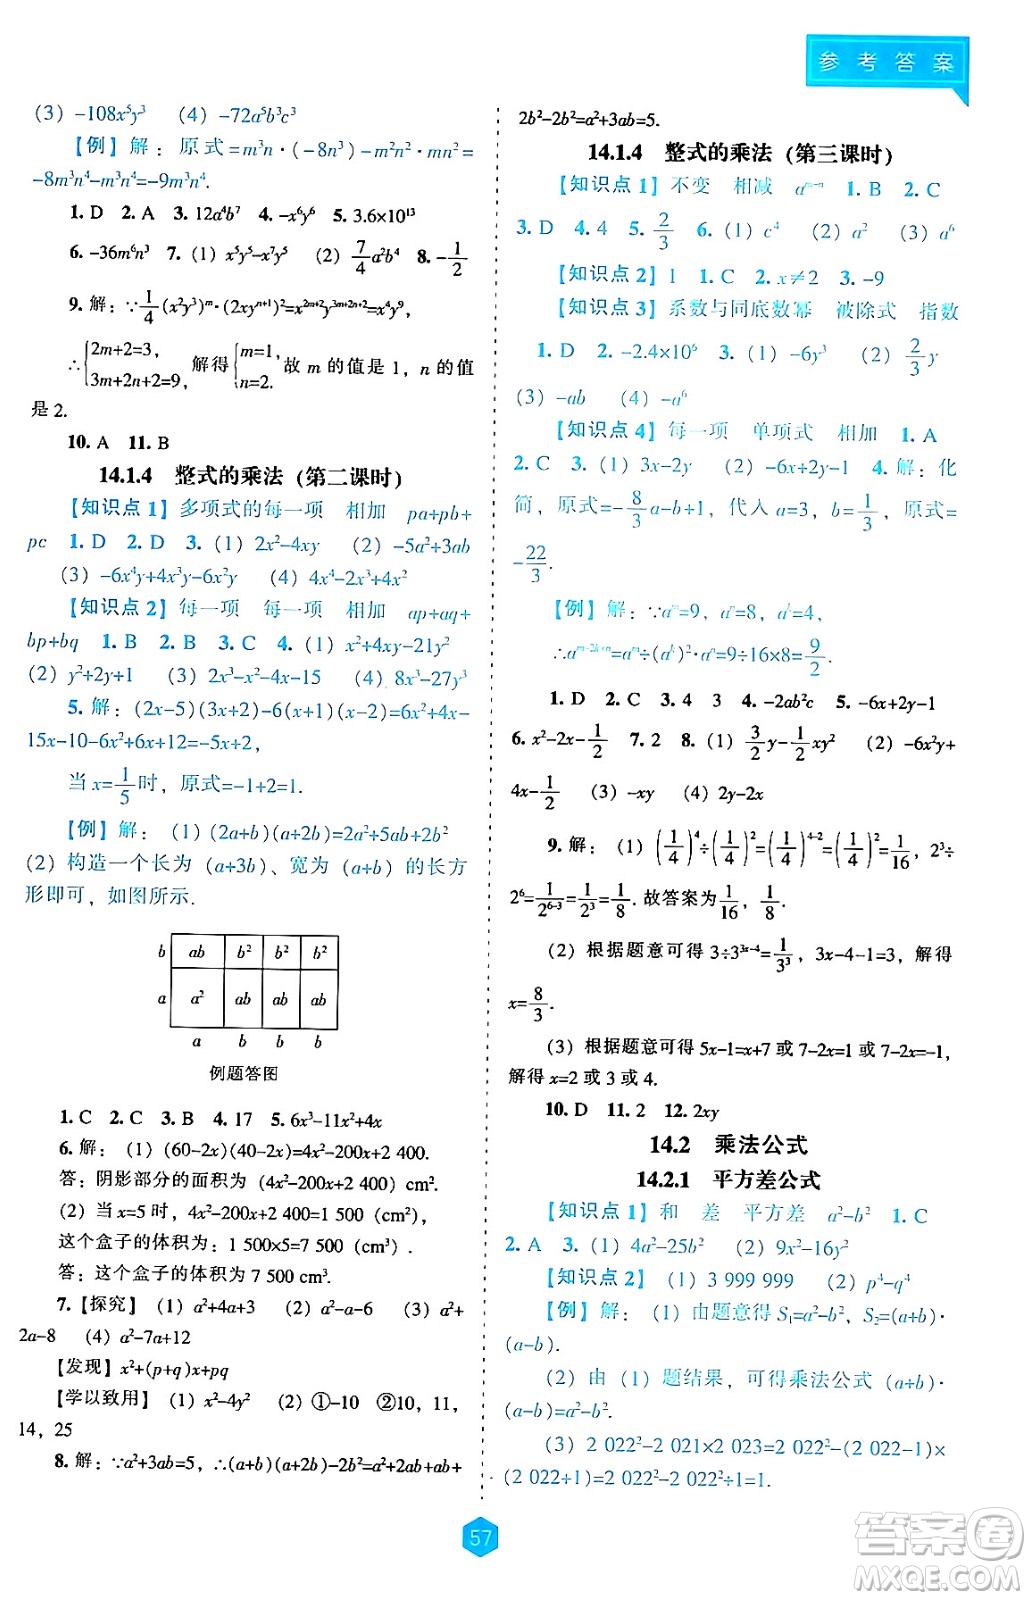 参考答案
(3) -108x⁵y³ (4) -72a⁵b³c³
【例】解：原式=m³n·(-8n³)-m²n²·mn²=
-8m³n⁴-m³n⁴=-9m³n⁴.
1. D 2. A 3. 12a⁴b⁷ 4. -x⁶y⁶ 5. 3.6×10¹³
6. -36m⁶n³ 7. (1) x⁵y⁵-x⁷y⁷ (2) 7/4a²b⁴ 8. -1/2
9. 解：∵1/4(x²y³)ᵐ·(2xyⁿ⁺¹)²=x²ᵐ⁺²y³ᵐ⁺²ⁿ⁺²=x⁴y⁹,
∴{2m+2=3, 3m+2n+2=9, 解得{m=1, n=2. 故 m 的值是 1，n 的值
是 2.
10. A 11. B
14.1.4 整式的乘法（第二课时）
【知识点 1】多项式的每一项 相加 pa+pb+
pc 1. D 2. D 3. (1) 2x²-4xy (2) -5a²+3ab
(3) -6x⁴y+4x³y-6x²y (4) 4x⁴-2x³+4x²
【知识点 2】每一项 每一项 相加 ap+aq+
bp+bq 1. B 2. B 3. C 4. (1) x²+4xy-21y²
(2) y²+2y+1 (3) 2x³-x²-4x-15 (4) 8x³-27y³
5. 解：(2x-5)(3x+2)-6(x+1)(x-2)=6x²+4x-
15x-10-6x²+12x-6x+12=-5x+2,
当 x=1/5时，原式=-1+2=1.
【例】解：(1) (2a+b)(a+2b)=2a²+5ab+2b²
(2) 构造一个长为 (a+3b)、宽为 (a+b) 的长方
形即可，如图所示.
b ab b² b² b²
a a² ab ab ab
a b b b
例题答图
1. C 2. C 3. B 4. 17 5. 6x³-11x²+4x
6. 解：(1) (60-2x)(40-2x)=4x²-200x+2 400.
答：阴影部分的面积为 (4x²-200x+2 400) cm².
(2) 当 x=5 时，4x²-200x+2 400=1 500 (cm²)，
这个盒子的体积为：1 500×5=7 500 (cm³).
答：这个盒子的体积为 7 500 cm³.
7. 【探究】 (1) a²+4a+3 (2) a²-a-6 (3) a²+
2a-8 (4) a²-7a+12
【发现】x²+(p+q)x+pq
【学以致用】(1) x²-4y² (2) ①-10 ②10，11，
14，25
8. 解：∵a²+3ab=5, ∴(a+b)(a+2b)-2b²=a²+2ab+ab+
2b²-2b²=a²+3ab=5.
14.1.4 整式的乘法（第三课时）
【知识点 1】不变 相减 aᵐ⁻ⁿ 1. B 2. C
3. D 4. 4 5. 2/3 6. (1) c⁴ (2) a² (3) a⁶
【知识点 2】1 1. C 2. x≠2 3. -9
【知识点 3】系数与同底数幂 被除式 指数
1. D 2. -2.4×10⁶ 3. (1) -6y³ (2) 2/3y
(3) -ab (4) -a⁶
【知识点 4】每一项 单项式 相加 1. A
2. C 3. (1) 3x-2y (2) -6x+2y-1 4. 解：化
简，原式=-8/3a-b+1，代入 a=3，b=1/3，原式=
-22/3.
【例】解：∵aᵐ=9，aⁿ=8，aᵏ=4，
∴aᵐ⁻²ᵏ⁺ⁿ=aᵐ÷(aᵏ)²·aⁿ=9÷16×8=9/2.
1. D 2. C 3. 4 4. -2ab²c 5. -6x+2y-1
6. x²-2x-1/2 7. 2 8. (1) 3/2y-1/2xy² (2) -6x²y+
4x-1/2 (3) -xy (4) 2y-2x
9. 解：(1) (1/4)⁴÷(1/4)²=(1/4)⁴⁻²=(1/4)²=1/16，2³÷
2⁶=1/2⁶⁻³=1/2³=1/8. 故答案为1/16，1/8.
(2) 根据题意可得 3÷3³ˣ⁻⁴=1/3³，3x-4-1=3，解得
x=8/3.
(3) 根据题意可得 5x-1=x+7 或 7-2x=0 或 7-2x=-1，
解得 x=2 或 3 或 4.
10. D 11. 2 12. 2xy
14.2 乘法公式
14.2.1 平方差公式
【知识点 1】和 差 平方差 a²-b² 1. C
2. A 3. (1) 4a²-25b² (2) 9x²-16y²
【知识点 2】(1) 3 999 999 (2) p⁴-q⁴
【例】解：(1) 由题意得 S₁=a²-b²，S₂=(a+b)·
(a-b).
(2) 由 (1) 题结果，可得乘法公式 (a+b)·
(a-b)=a²-b².
(3) 2 022²-2 021×2 023=2 022²-(2 022-1)×
(2 022+1)=2 022²-2 022²+1=1.
57
答案卷
MXQE.COM